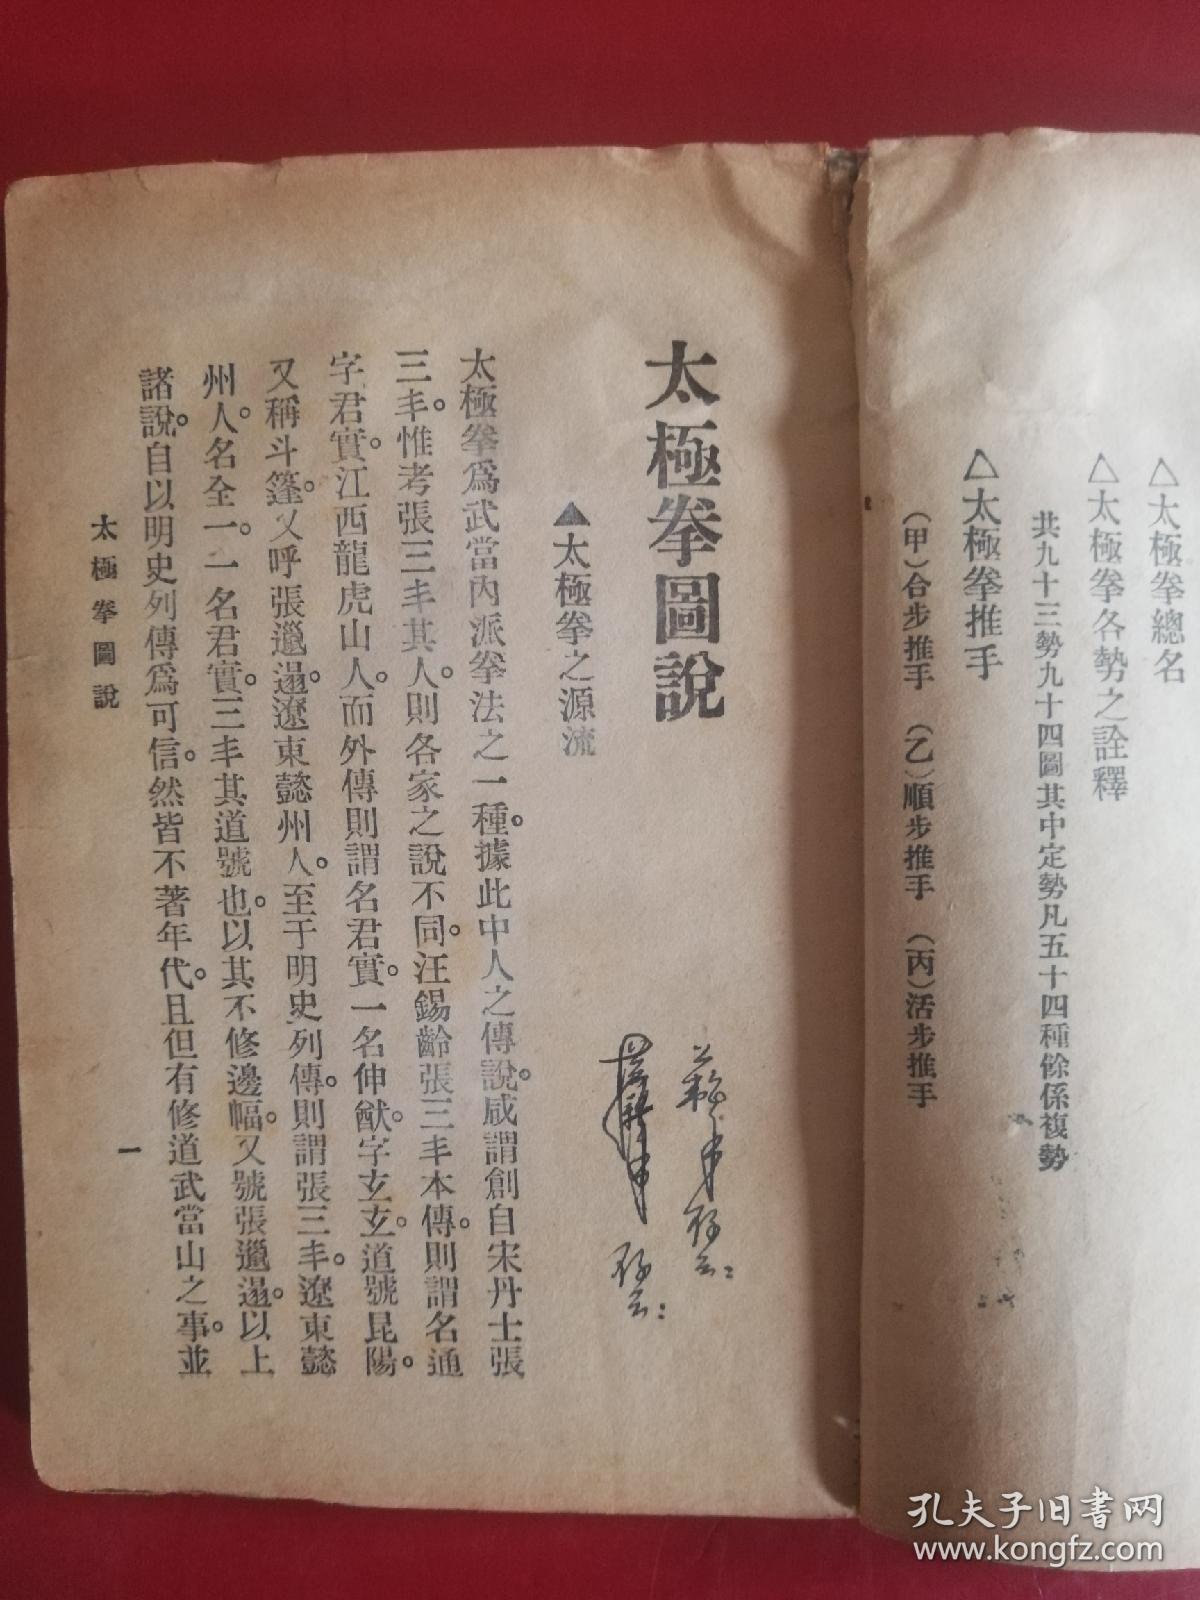 △太極拳總名
△太極拳各勢之詮釋
共九十三勢九十四圖其中定勢凡五十四種餘係複勢
△太極拳推手
（甲）合步推手　（乙）順步推手　（丙）活步推手
太極拳圖說
▲太極拳之源流
太極拳爲武當內派拳法之一種。據此中人之傳說。咸謂創自宋丹士張
三丰。惟考張三丰其人。則各家之說不同。汪錫齡張三丰本傳。則謂名通
字君實。江西龍虎山人。而外傳則謂名君實。一名仲猷。字玄玄。道號昆陽。
又稱斗篷。又呼張邋遢。遼東懿州人。至于明史列傳。則謂張三丰。遼東懿
州人。名全一。一名君實。三丰其道號也。以其不修邊幅。又號張邋遢。以上
諸說。自以明史列傳爲可信。然皆不著年代。且但有修道武當山之事。並
太極拳圖說
一
孔夫子旧书网
www.kongfz.com